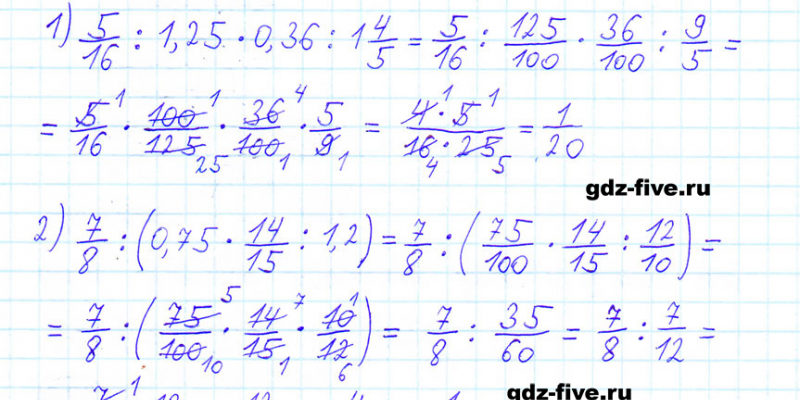 1) 5/16 : 1,25 · 0,36 : 1 4/5 = 5/16 : 125/100 · 36/100 : 9/5 =
= 5/16 · 100/125 · 36/100 · 5/9 = 4 · 5/16 · 25 = 1/20
gdz-five.ru
2) 7/8 : (0,75 · 14/15 : 1,2) = 7/8 : (75/100 · 14/15 : 12/10) =
= 7/8 : (75/100 · 14/15 · 10/12) = 7/8 : 35/60 = 7/8 : 7/12 =
gdz-five.ru